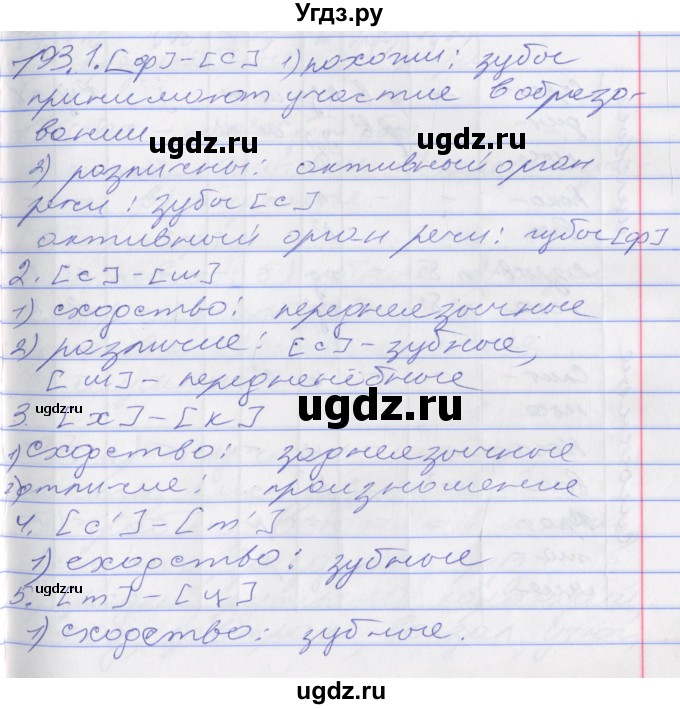 УгдЗ.ру
193.1. [ф]-[с] 1) похожи: зубы
принимают участие в образо-
вании
ugdz.ru ugdz.ru
2) различны: активный орган
речи: зубы [с]
активный орган речи: губы [ф]
2. [с]-[ш]
1) сходство: переднеязычные
2) различие: [с]-зубные,
[ш]-передненёбные
ugdz.ru
3. [х]-[к]
1) Сходство: заднеязычные
2) отличие: произношение
4. [с']-[т']
ugdz.ru ugdz.ru
1) сходство: зубные
5. [т]-[ц]
1) сходство: зубные.
ugdz.ru